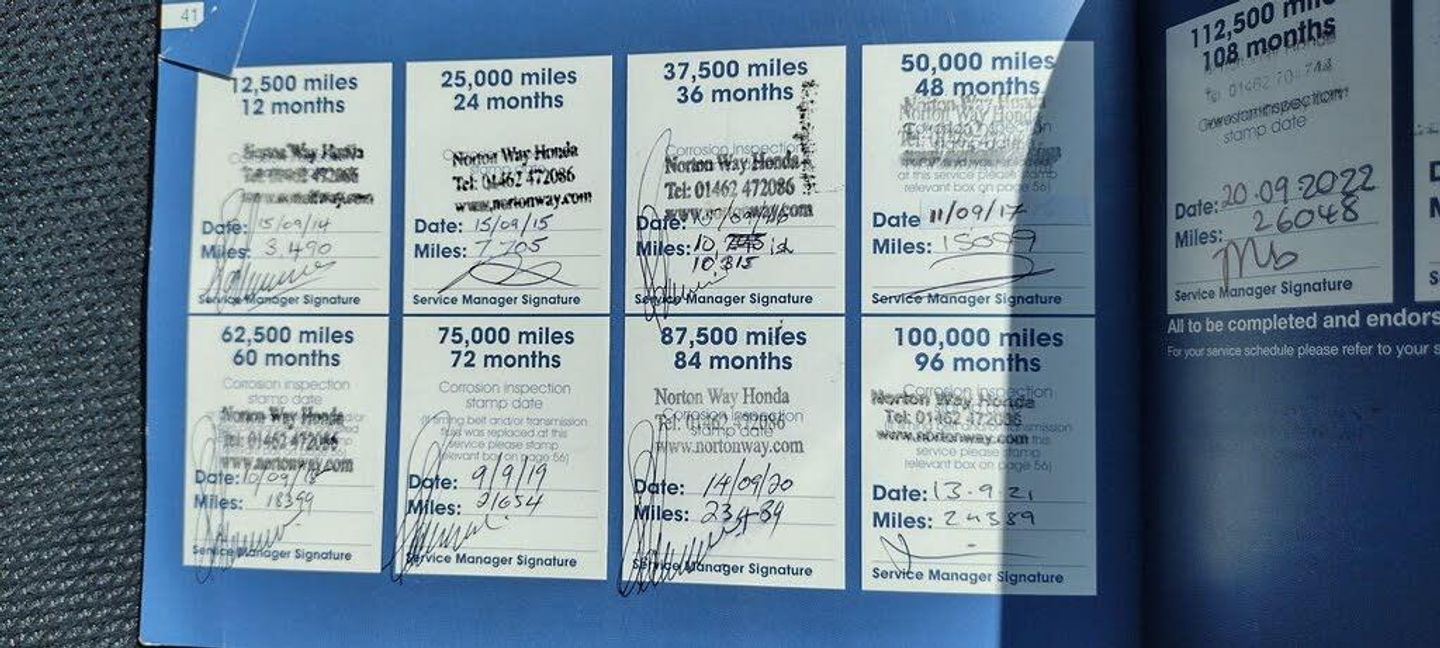 41
12,500 miles
12 months
Norton Way Honda
Date: 15/09/14
Miles: 3,490
Service Manager Signature
25,000 miles
24 months
Norton Way Honda
Tel: 01462 472086
www.nortonway.com
Date: 15/09/15
Miles: 7,705
Service Manager Signature
37,500 miles
36 months
Corrosion inspection
Norton Way Honda
Tel: 01462 472086
www.nortonway.com
Date:
Miles: 10,
10,815
Service Manager Signature
50,000 miles
48 months
Norton Way Honda
Corrosion inspection
stamp date
at this service please stamp
relevant box on page 56)
Date 11/09/17
Miles: 15099
Service Manager Signature
62,500 miles
60 months
Corrosion inspection
stamp date
Norton Way Honda
Tel: 01462 472086
www.nortonway.com
Date: 10/09/18
Miles: 18399
Service Manager Signature
75,000 miles
72 months
Corrosion inspection
stamp date
(If timing belt and/or transmission
fluid was replaced at this
service please stamp
relevant box on page 56)
Date: 9/9/19
Miles: 21654
Service Manager Signature
87,500 miles
84 months
Norton Way Honda
Corrosion inspection
Tel: 01462 472086
stamp date
www.nortonway.com
Date: 14/09/20
Miles: 23489
Service Manager Signature
100,000 miles
96 months
Corrosion inspection
Norton Way Honda
Tel: 01462 472086
www.nortonway.com
service please stamp
relevant box on page 56)
Date: 13.9.21
Miles: 24389
Service Manager Signature
112,500 miles
108 months
Corrosion inspection
stamp date
Date: 20.09.2022
Miles: 26048
Service Manager Signature
All to be completed and endors
For your service schedule please refer to your s